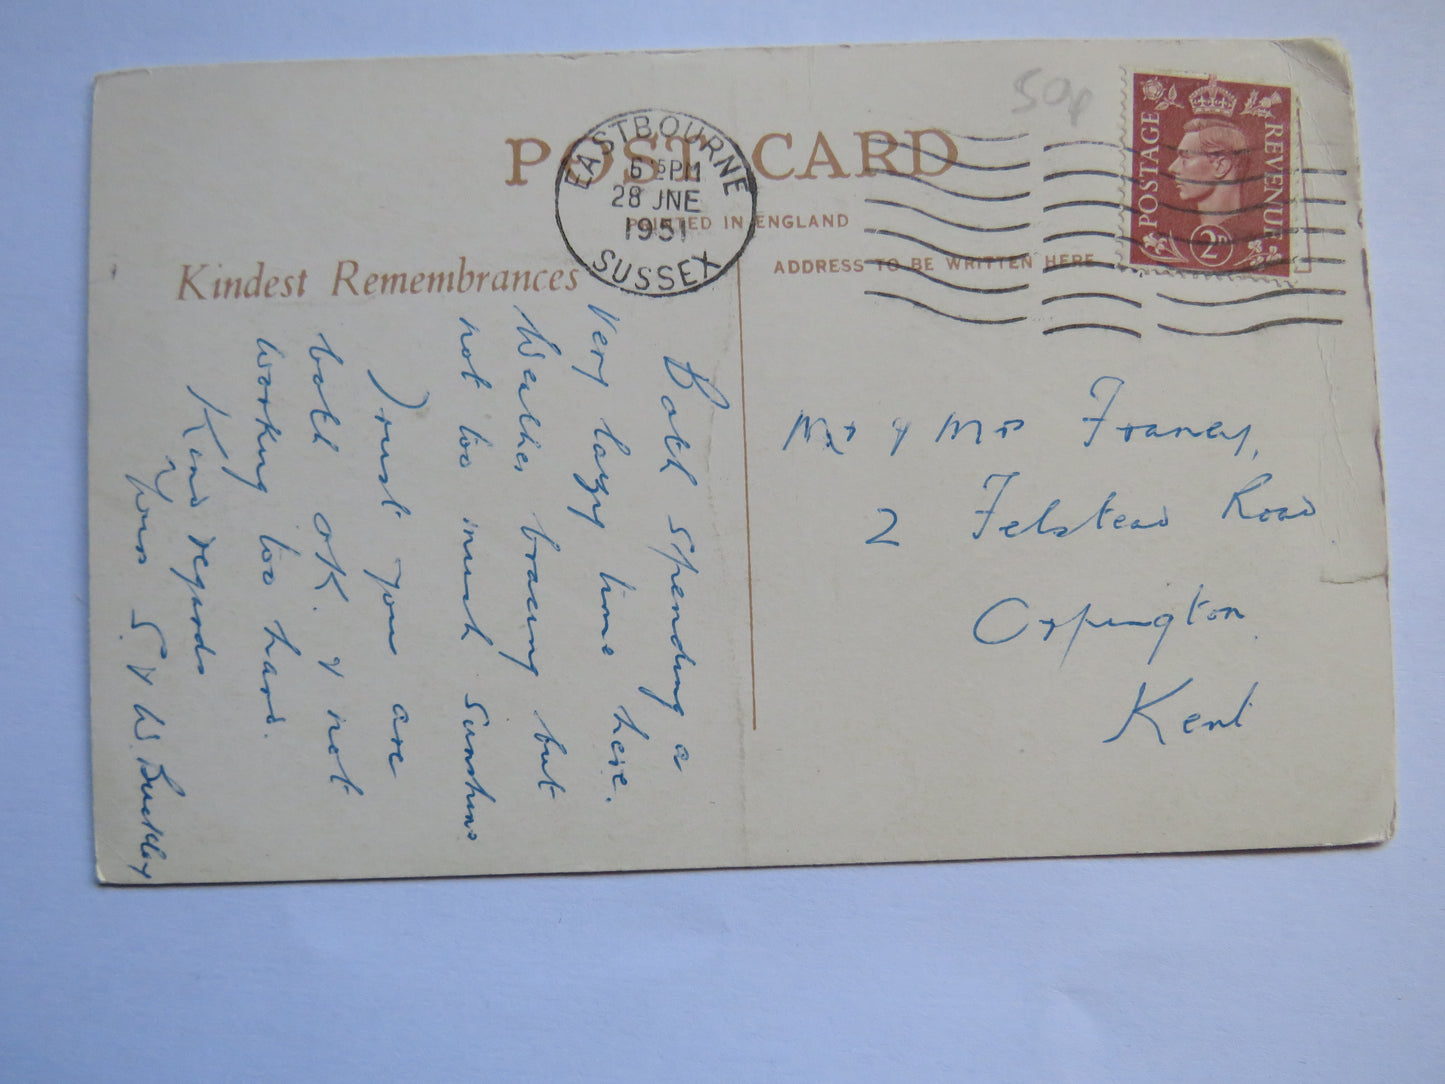 50p
POST CARD
PRINTED IN ENGLAND
ADDRESS TO BE WRITTEN HERE
Kindest Remembrances
EASTBOURNE
6 15 PM
28 JNE
1951
SUSSEX
POSTAGE
REVENUE
2D
Both spending a
very lazy time here.
Weather bracing but
not too much Sunshine
Trust you are
both OK. & not
working too hard.
Kind regards
Yours S. & W. Buckley
Mr & Mrs Franey,
2 Felstead Road
Orpington
Kent